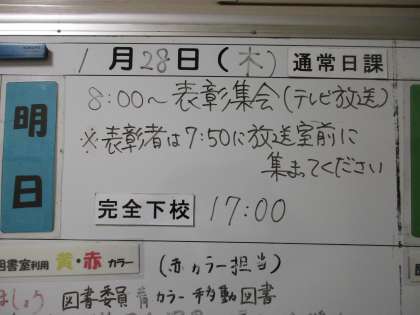 1月28日(木) 通常日課
明日
8:00～表彰集会(テレビ放送)
※表彰者は7:50に放送室前に
集まってください
完全下校 17:00
図書室利用 黄・赤 カラー (赤カラー担当)
ましょう 図書委員 青カラー 移動図書